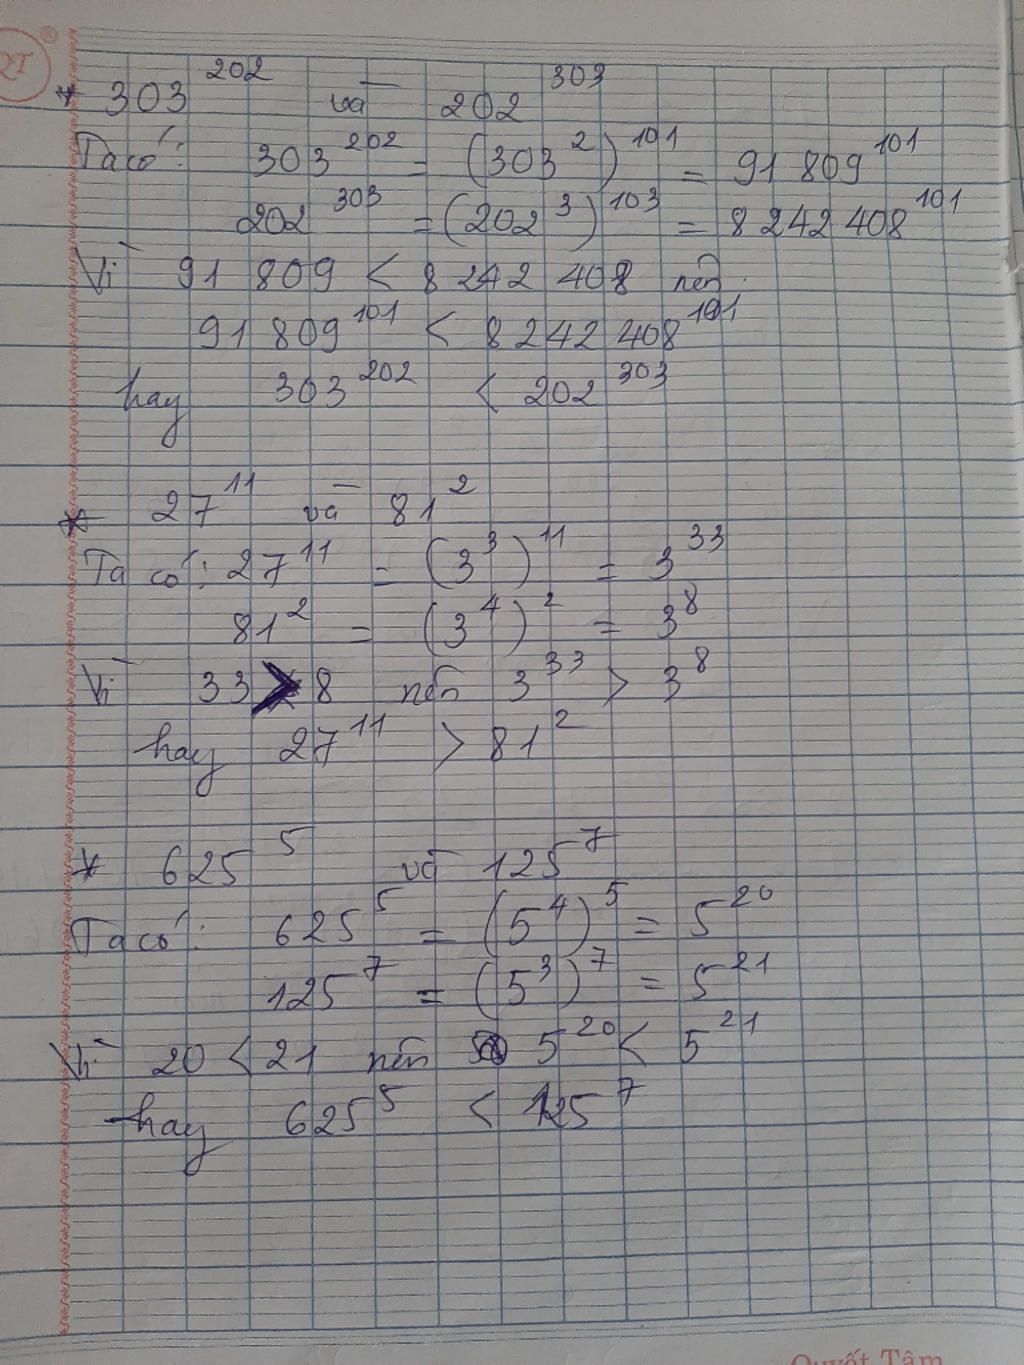 * 303^202 và 202^303
Ta có: 303^202 = (303^2)^101 = 91 809^101
202^303 = (202^3)^103 = 8 242 408^101
Vì 91 809 < 8 242 408 nên
91 809^101 < 8 242 408^101
hay 303^202 < 202^303
* 27^11 và 81^2
Ta có: 27^11 = (3^3)^11 = 3^33
81^2 = (3^4)^2 = 3^8
Vì 33 > 8 nên 3^33 > 3^8
hay 27^11 > 81^2
* 625^5 và 125^7
Ta có: 625^5 = (5^4)^5 = 5^20
125^7 = (5^3)^7 = 5^21
Vì 20 < 21 nên 5^20 < 5^21
hay 625^5 < 125^7
Quyết Tâm